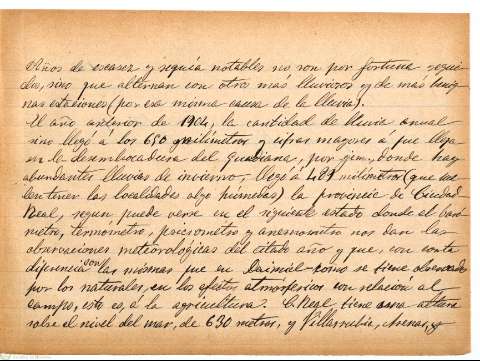 Años de escasez y sequía notables no son por fortuna segui-
dos, sino que alternan con otros más lluviosos y de más benig-
nas estaciones (por esa misma causa de la lluvia).
El año anterior de 1904, la cantidad de lluvia anual
sino llegó a los 650 milímetros y cifras mayores á que llega
en la desembocadura del Guadiana, por ejem., donde hay
abundantes lluvias de invierno, llegó á 481 milímetros (que sue-
len tener las localidades algo húmedas) la provincia de Ciudad-
Real, segun puede verse en el siguiente estado donde el baró-
metro, termometro, psicrometro y anemometro nos dan las
observaciones meteorológicas del citado año y que, con corta
diferencia son las mismas que en Daimiel como se tiene observado
por los naturales, en los efectos atmosféricos con relación al
campo, esto es, á la agricultura. C. Real tiene una altura
sobre el nivel del mar, de 630 metros, y Villarrubia, Arenas, &